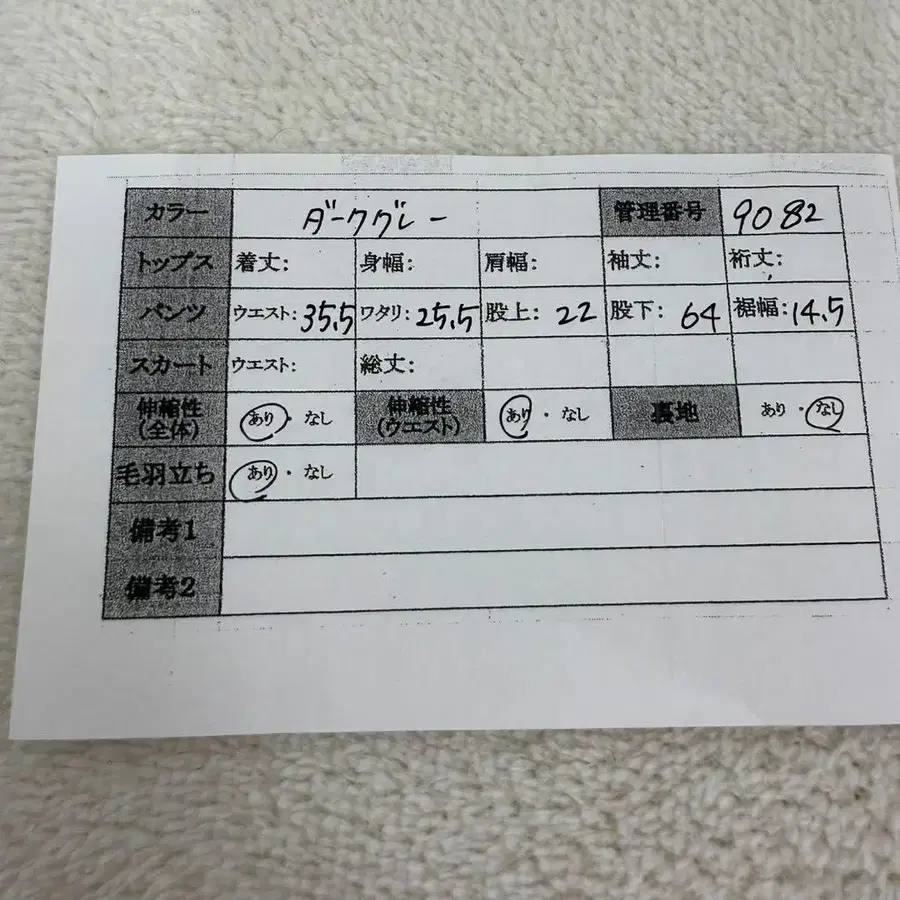 カラー ダークグレー 管理番号 9082
トップス 着丈: 身幅: 肩幅: 袖丈: 裄丈:
パンツ ウエスト: 35.5 ワタリ: 25.5 股上: 22 股下: 64 裾幅: 14.5
スカート ウエスト: 総丈:
伸縮性(全体) あり・なし 伸縮性(ウエスト) あり・なし 裏地 あり・なし
毛羽立ち あり・なし
備考1
備考2